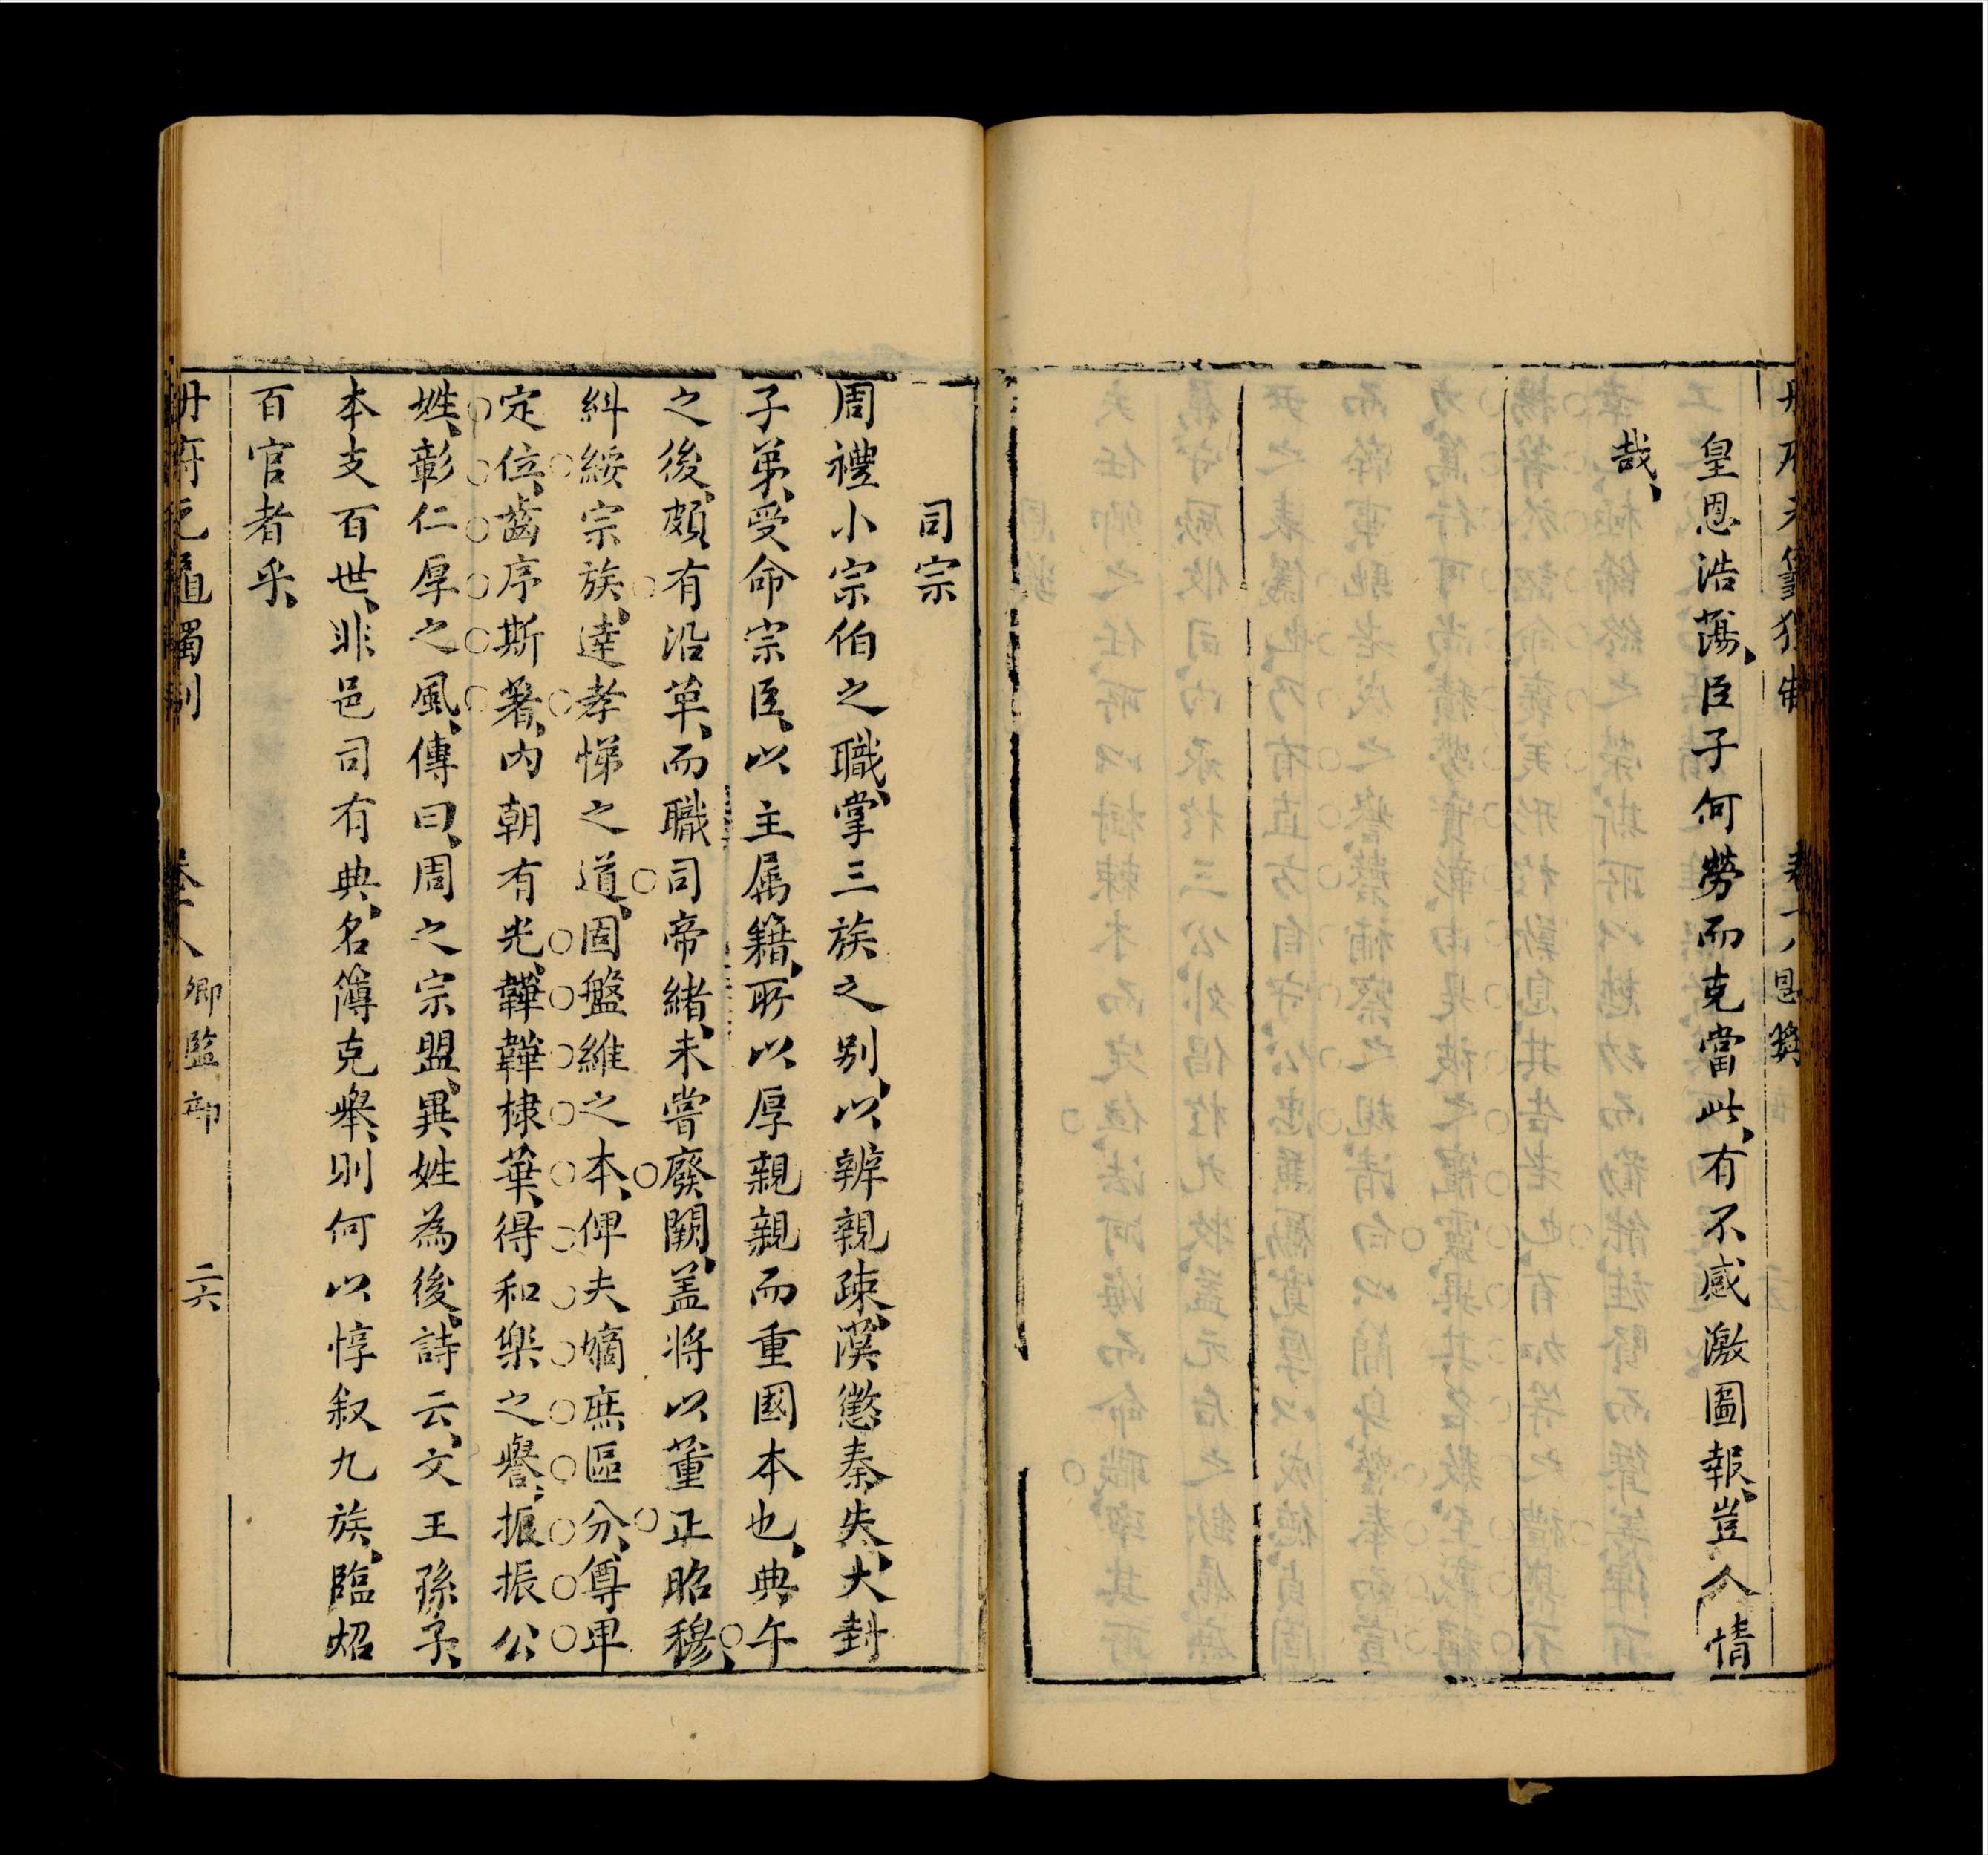 皇恩浩蕩、臣子何勞而克當此、有不感激圖報、豈人情
哉、
司宗
周禮小宗伯之職、掌三族之別、以辨親疎、漢懲秦失、大封
子弟、受命宗臣、以主属籍、所以厚親親而重國本也、典午
之後、頗有沿革、而職司帝緒、未嘗廢闕、盖將以董正昭穆、
糾綏宗族、達孝悌之道、固盤維之本、俾夫嫡庶區分、尊卑
定位、齒序斯著、內朝有光、韡韡棣華、得和樂之譽、振振公
姓、彰仁厚之風、傳曰、周之宗盟、異姓為後、詩云、文王孫子、
本支百世、非邑司有典、名簿克舉、則何以惇叙九族、臨炤
百官者乎、
卿監部
二六